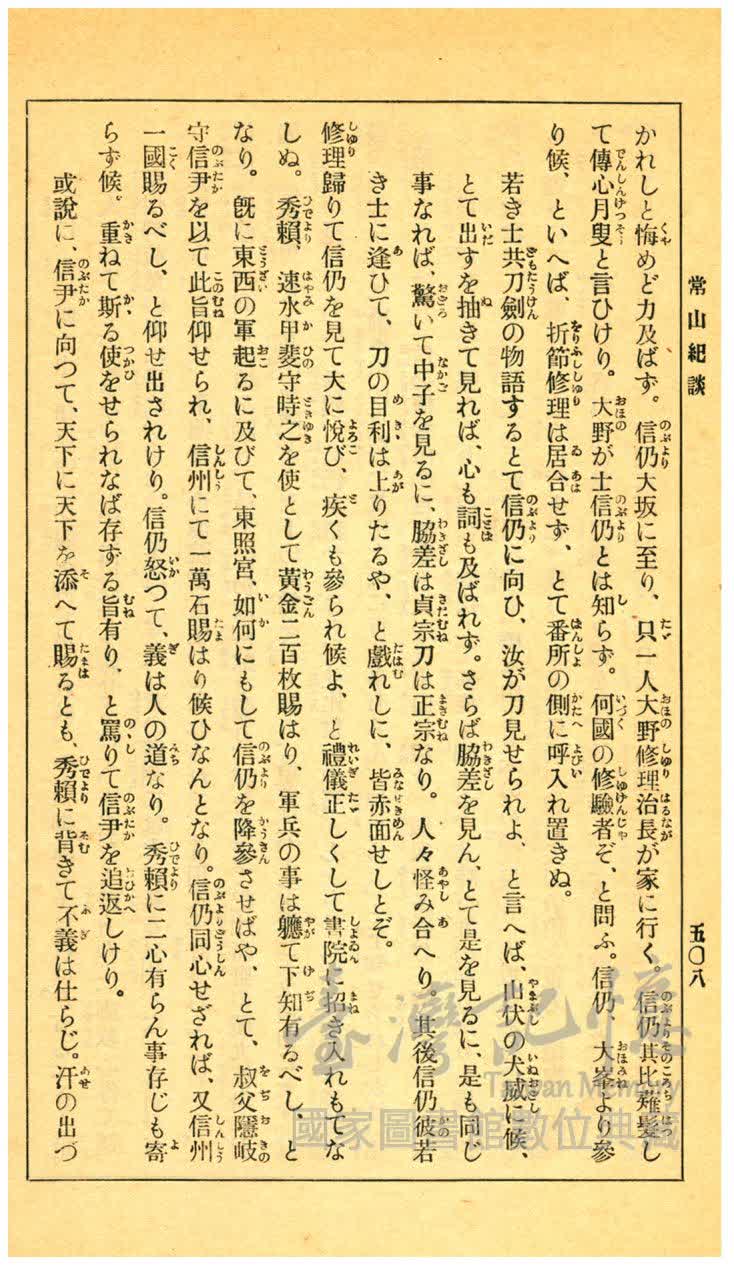 常山紀談
五〇八
かれしと悔めど力及ばず。信仍大坂に至り、只一人大野修理治長が家に行く。信仍其比薙髮し
て傳心月叟と言ひけり。大野が士信仍とは知らず。何國の修驗者ぞ、と問ふ。信仍、大峯より參
り候、といへば、折節修理は居合せず、とて番所の側に呼入れ置きぬ。
若き士共刀劍の物語するとて信仍に向ひ、汝が刀見せられよ、と言へば、山伏の犬威に候、
とて出すを抽きて見れば、心も詞も及ばれず。さらば脇差を見ん、とて是を見るに、是も同じ
事なれば、驚いて中子を見るに、脇差は貞宗刀は正宗なり。人々怪み合へり。其後信仍彼若
き士に逢ひて、刀の目利は上りたるや、と戲れしに、皆赤面せしとぞ。
修理歸りて信仍を見て大に悅び、疾くも參られ候よ、と禮儀正しくして書院に招き入れもてな
しぬ。秀賴、速水甲斐守時之を使として黃金二百枚賜はり、軍兵の事は軈て下知有るべし、と
なり。旣に東西の軍起るに及びて、東照宮、如何にもして信仍を降參させばや、とて、叔父隱岐
守信尹を以て此旨仰せられ、信州にて一萬石賜はり候ひなんとなり。信仍同心せざれば、又信州
一國賜るべし、と仰せ出されけり。信仍怒つて、義は人の道なり。秀賴に二心有らん事存じも寄
らず候。重ねて斯る使をせられなば存ずる旨有り、と罵りて信尹を追返しけり。
或說に、信尹に向つて、天下に天下を添へて賜るとも、秀賴に背きて不義は仕らじ。汗の出づ
臺灣記憶
Taiwan Memory
國家圖書館數位典藏